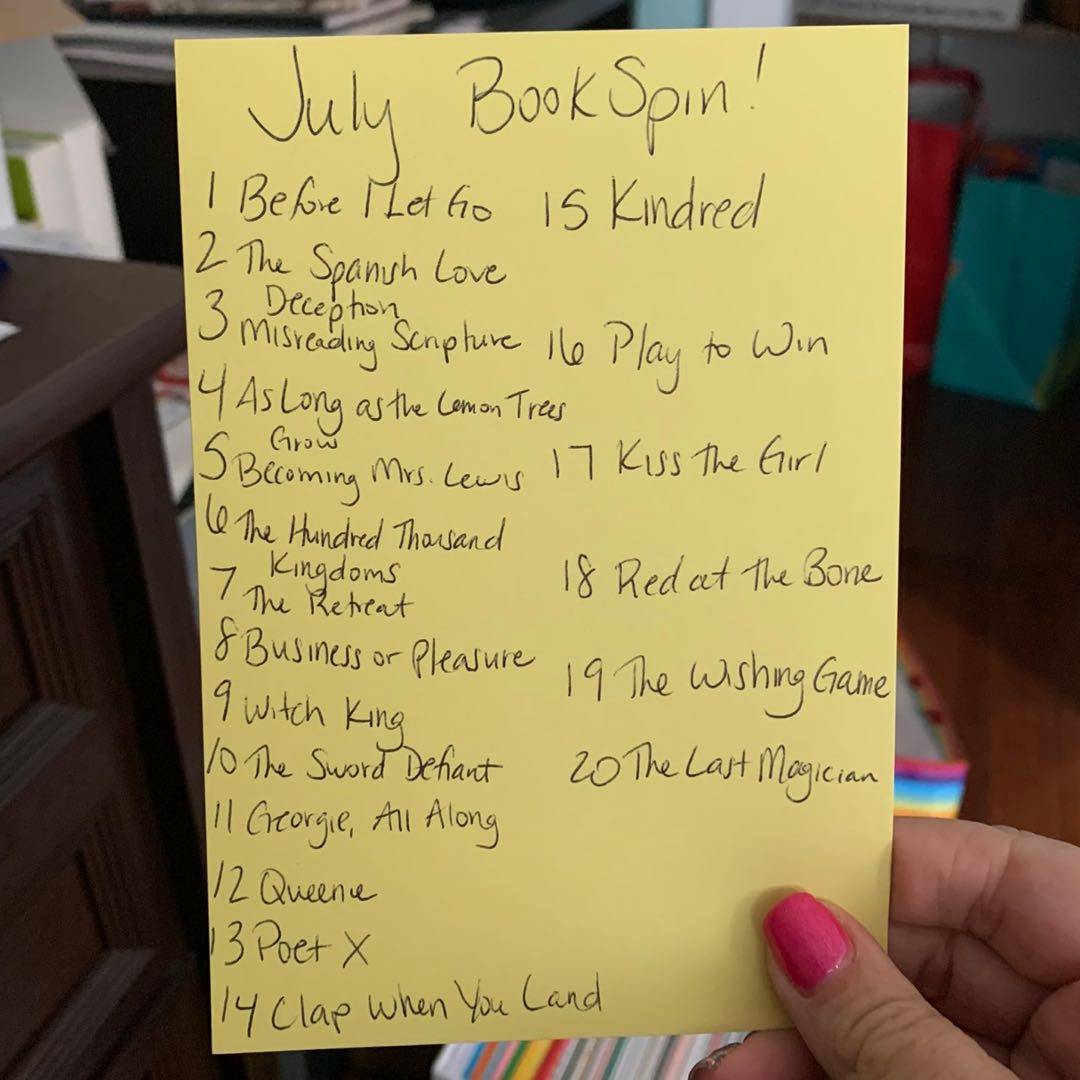 July BookSpin!
1 Before I Let Go
2 The Spanish Love
Deception
3 Misreading Scripture
4 As Long as the Lemon Trees
Grow
5 Becoming Mrs. Lewis
6 The Hundred Thousand
Kingdoms
7 The Retreat
8 Business or Pleasure
9 Witch King
10 The Sword Defiant
11 Georgie, All Along
12 Queenie
13 Poet X
14 Clap When You Land
15 Kindred
16 Play to Win
17 Kiss the Girl
18 Red at the Bone
19 The Wishing Game
20 The Last Magician